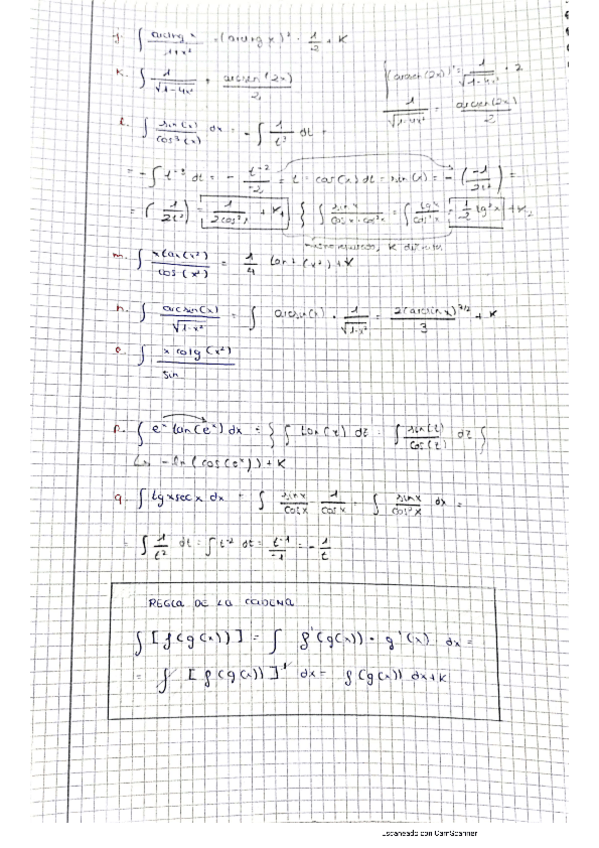 j. ∫ arctg x / 1+x² = (arctg x)² · 1/2 + K
k. ∫ 1/√1-4x² = arcsen(2x)/2
∫ (arcsen(2x))' = 1/√1-4x² · 2
1/√1-4x² = arcsen(2x)/2
l. ∫ sin(x)/cos³(x) dx = -∫ 1/t³ dt =
= -∫ t⁻³ dt = - t⁻²/-2 = t = cos(x) dt = sin(x) = -(-1/2t²) =
= (1/2t²) = 1/2cos² + K₁ } { ∫ sin x/cos x · cos²x = ∫ tg x/cos²x = 1/2 tg²x + K₂
m. ∫ x tan(x²)/cos(x²) = 1/4 tan²(x²) + K
n. ∫ arcsen(x)/√1-x² = ∫ arcsin(x) · 1/√1-x² = 2(arcsin x)^3/2 / 3 + K
o. ∫ x cotg(x²)/sin
p. ∫ eˣ tan(eˣ) dx = { ∫ tan(z) dz = ∫ sin(z)/cos(z) dz }
-ln(cos(eˣ)) + K
q. ∫ tg x sec x dx = ∫ sin x/cos x · 1/cos x = ∫ sin x/cos²x dx =
= ∫ 1/t² dt = ∫ t⁻² dt = t⁻¹/-1 = -1/t
REGLA DE LA CADENA
∫ [f(g(x))] = ∫ f'(g(x)) · g'(x) dx =
= ∫ [f(g(x))]' dx = f(g(x)) dx + K
Escaneado con CamScanner